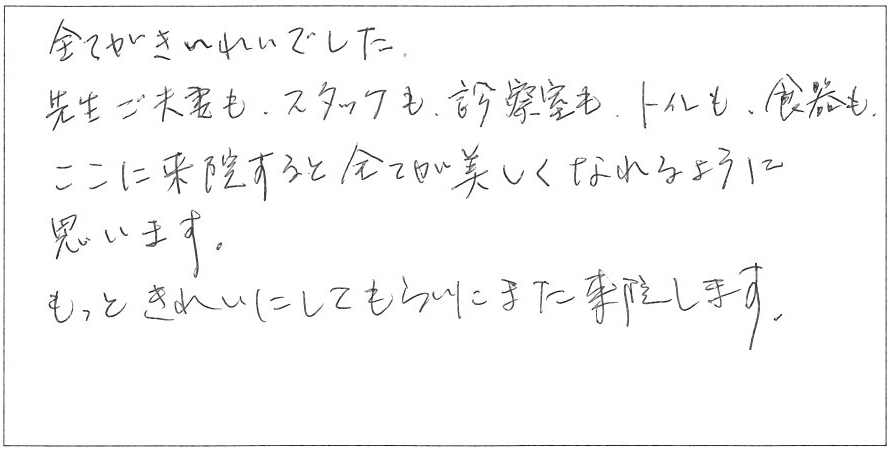 全てがきれいでした.
先生ご夫妻も、スタッフも、診察室も、トイレも、食器も、
ここに来院すると全てが美しくなれるように
思います。
もっときれいにしてもらいにまた来院します。